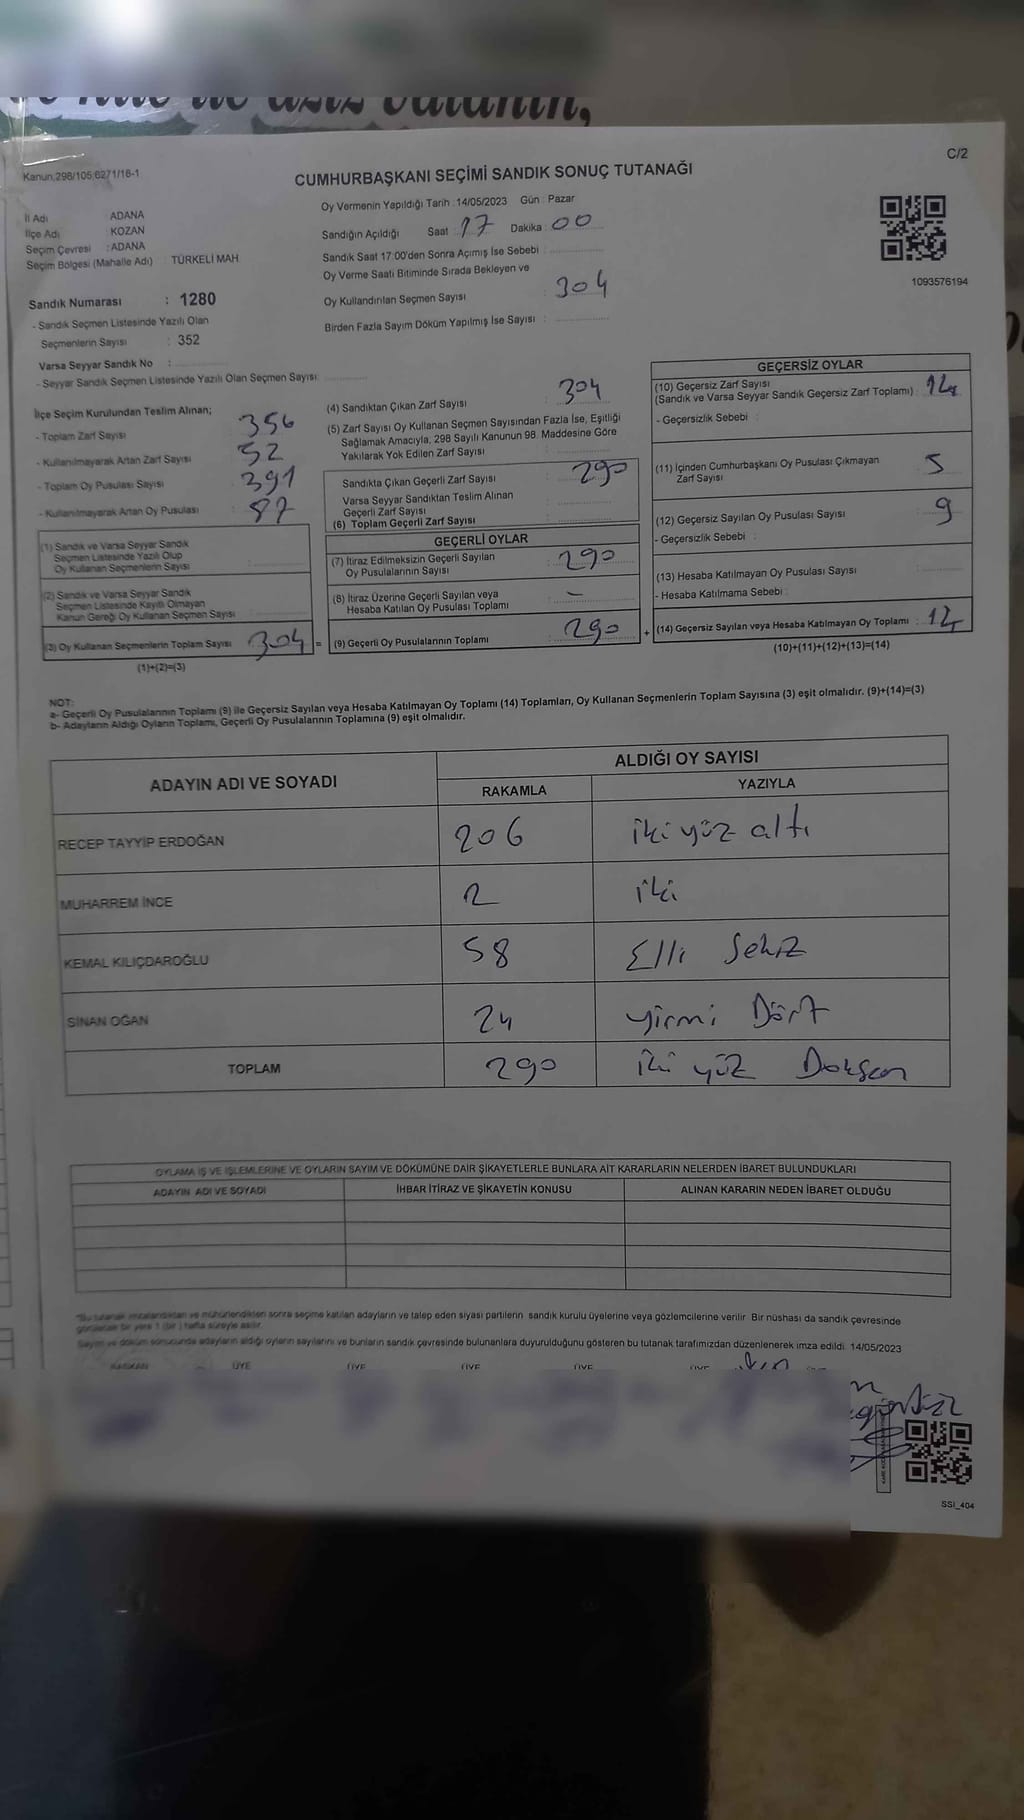 aziz vatanın,
C/2
Kanun;298/105;6271/16-1
CUMHURBAŞKANI SEÇİMİ SANDIK SONUÇ TUTANAĞI
İl Adı : ADANA
İlçe Adı : KOZAN
Seçim Çevresi : ADANA
Seçim Bölgesi (Mahalle Adı) : TÜRKELİ MAH
Sandık Numarası : 1280
- Sandık Seçmen Listesinde Yazılı Olan
Seçmenlerin Sayısı : 352
Varsa Seyyar Sandık No :
- Seyyar Sandık Seçmen Listesinde Yazılı Olan Seçmen Sayısı:
Oy Vermenin Yapıldığı Tarih :14/05/2023 Gün : Pazar
Sandığın Açıldığı Saat : 17 Dakika : 00
Sandık Saat 17:00'den Sonra Açımış İse Sebebi :
Oy Verme Saati Bitiminde Sırada Bekleyen ve
Oy Kullandırılan Seçmen Sayısı : 304
Birden Fazla Sayım Döküm Yapılmış İse Sayısı :
1093576194
İlçe Seçim Kurulundan Teslim Alınan;
- Toplam Zarf Sayısı : 356
- Kullanılmayarak Artan Zarf Sayısı : 52
- Toplam Oy Pusulası Sayısı : 391
- Kullanılmayarak Artan Oy Pusulası : 87
(1) Sandık ve Varsa Seyyar Sandık
Seçmen Listesinde Yazılı Olup
Oy Kullanan Seçmenlerin Sayısı :
(2) Sandık ve Varsa Seyyar Sandık
Seçmen Listesinde Kayıtlı Olmayan
Kanun Gereği Oy Kullanan Seçmen Sayısı :
(3) Oy Kullanan Seçmenlerin Toplam Sayısı : 304 =
(1)+(2)=(3)
(4) Sandıktan Çıkan Zarf Sayısı : 304
(5) Zarf Sayısı Oy Kullanan Seçmen Sayısından Fazla İse, Eşitliği
Sağlamak Amacıyla, 298 Sayılı Kanunun 98. Maddesine Göre
Yakılarak Yok Edilen Zarf Sayısı :
Sandıkta Çıkan Geçerli Zarf Sayısı : 290
Varsa Seyyar Sandıktan Teslim Alınan
Geçerli Zarf Sayısı :
(6) Toplam Geçerli Zarf Sayısı :
GEÇERLİ OYLAR
(7) İtiraz Edilmeksizin Geçerli Sayılan
Oy Pusulalarının Sayısı : 290
(8) İtiraz Üzerine Geçerli Sayılan veya
Hesaba Katılan Oy Pusulası Toplamı : -
(9) Geçerli Oy Pusulalarının Toplamı : 290 +
GEÇERSİZ OYLAR
(10) Geçersiz Zarf Sayısı
(Sandık ve Varsa Seyyar Sandık Geçersiz Zarf Toplamı) : 14
- Geçersizlik Sebebi :
(11) İçinden Cumhurbaşkanı Oy Pusulası Çıkmayan
Zarf Sayısı : 5
(12) Geçersiz Sayılan Oy Pusulası Sayısı : 9
- Geçersizlik Sebebi :
(13) Hesaba Katılmayan Oy Pusulası Sayısı :
- Hesaba Katılmama Sebebi :
(14) Geçersiz Sayılan veya Hesaba Katılmayan Oy Toplamı : 14
(10)+(11)+(12)+(13)=(14)
NOT:
a- Geçerli Oy Pusulalarının Toplamı (9) ile Geçersiz Sayılan veya Hesaba Katılmayan Oy Toplamı (14) Toplamları, Oy Kullanan Seçmenlerin Toplam Sayısına (3) eşit olmalıdır. (9)+(14)=(3)
b- Adayların Aldığı Oyların Toplamı, Geçerli Oy Pusulalarının Toplamına (9) eşit olmalıdır.
ADAYIN ADI VE SOYADI ALDIĞI OY SAYISI
RAKAMLA YAZIYLA
RECEP TAYYİP ERDOĞAN 206 iki yüz altı
MUHARREM İNCE 2 iki
KEMAL KILIÇDAROĞLU 58 Elli Sekiz
SİNAN OĞAN 24 yirmi Dört
TOPLAM 290 iki yüz Doksan
OYLAMA İŞ VE İŞLEMLERİNE VE OYLARIN SAYIM VE DÖKÜMÜNE DAİR ŞİKAYETLERLE BUNLARA AİT KARARLARIN NELERDEN İBARET BULUNDUKLARI
ADAYIN ADI VE SOYADI İHBAR İTİRAZ VE ŞİKAYETİN KONUSU ALINAN KARARIN NEDEN İBARET OLDUĞU
*Bu tutanak imzalandıktan ve mühürlendikten sonra seçime katılan adayların ve talep eden siyasi partilerin sandık kurulu üyelerine veya gözlemcilerine verilir. Bir nüshası da sandık çevresinde
görülecek bir yere 1 (bir) hafta süreyle asılır.
Sayım ve döküm sonucunda adayların aldığı oyların sayılarını ve bunların sandık çevresinde bulunanlara duyurulduğunu gösteren bu tutanak tarafımızdan düzenlenerek imza edildi. 14/05/2023
BAŞKAN ÜYE ÜYE ÜYE ÜYE ÜYE
SSİ_404